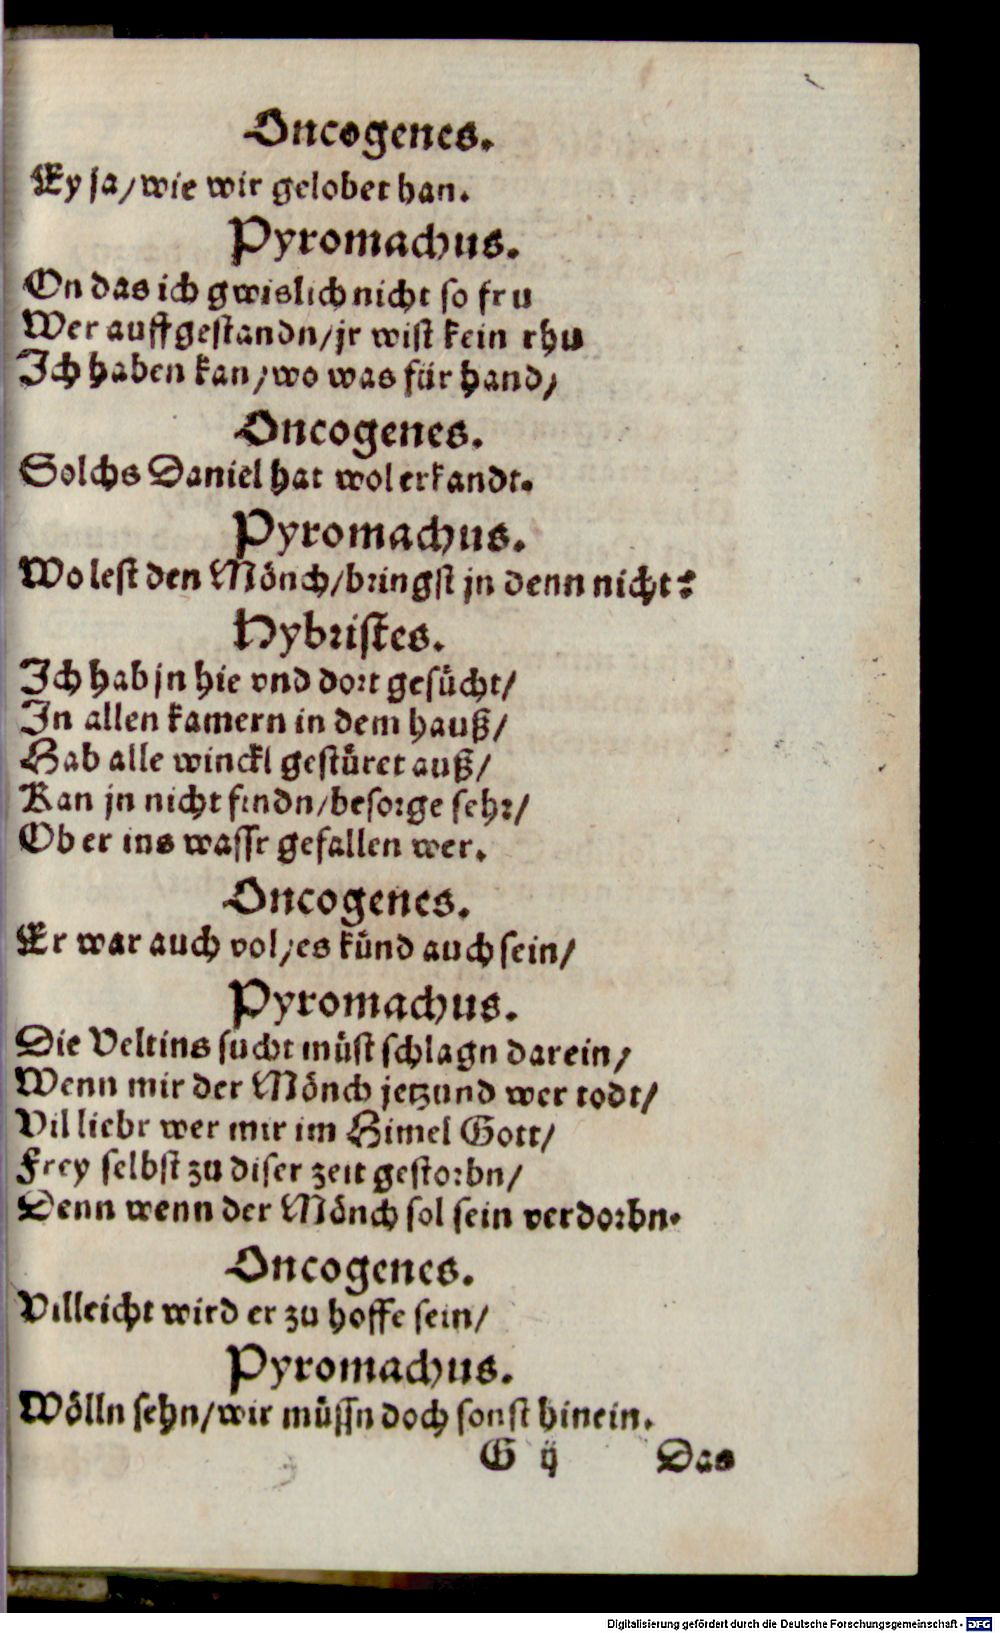 Oncogenes.
Ey ja/wie wir gelobet han.
Pyromachus.
On das ich gwislich nicht so fru
Wer auffgestandn/jr wist kein rhu
Ich haben kan/wo was für hand/
Oncogenes.
Solchs Daniel hat wol erkandt.
Pyromachus.
Wo lest den Mönch/bringst jn denn nicht?
Hybristes.
Ich hab jn hie vnd dort gesücht/
In allen kamern in dem hauß/
Hab alle winckl gestüret auß/
Kan jn nicht findn/besorge sehr/
Ob er ins wassr gefallen wer.
Oncogenes.
Er war auch vol/es künd auch sein/
Pyromachus.
Die Veltins sucht müst schlagn darein/
Wenn mir der Mönch jetzund wer todt/
Vil liebr wer mir im Himel Gott/
Frey selbst zu diser zeit gestorbn/
Denn wenn der Mönch sol sein verdorbn.
Oncogenes.
Villeicht wird er zu hoffe sein/
Pyromachus.
Wölln sehn/wir müssn doch sonst hinein.
G ij Das
Digitalisierung gefördert durch die Deutsche Forschungsgemeinschaft - DFG